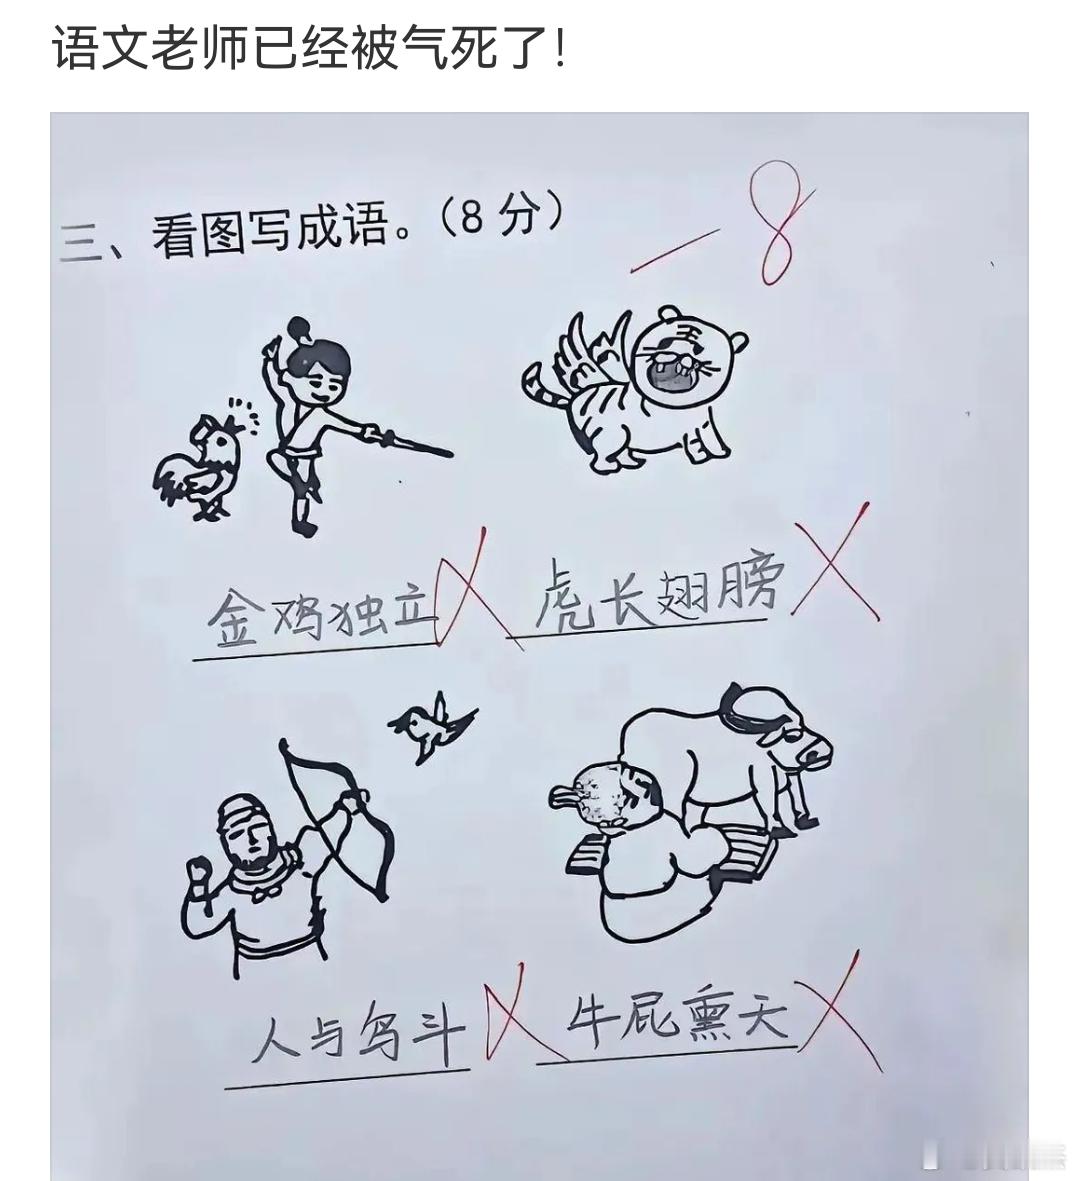 语文老师已经被气死了!
三、看图写成语。(8分)
-8
王
金鸡独立
虎长翅膀
人与鸟斗
牛屁熏天